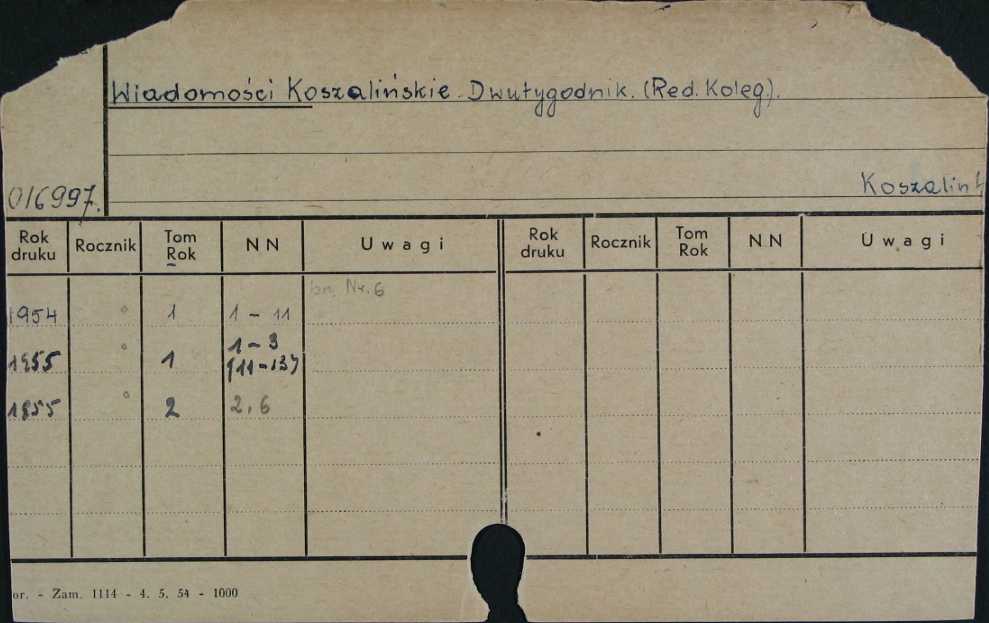 Wiadomości Koszalińskie. Dwutygodnik. (Red. Koleg).
Koszalin
016997.
Rok druku Rocznik Tom Rok NN Uwagi Rok druku Rocznik Tom Rok NN Uwagi
br. Nr. 6
1954 ° 1 1 - 11
1955 ° 1 1 - 3
(11-13)
1855 ° 2 2, 6
or. - Zam. 1114 - 4. 5. 54 - 1000